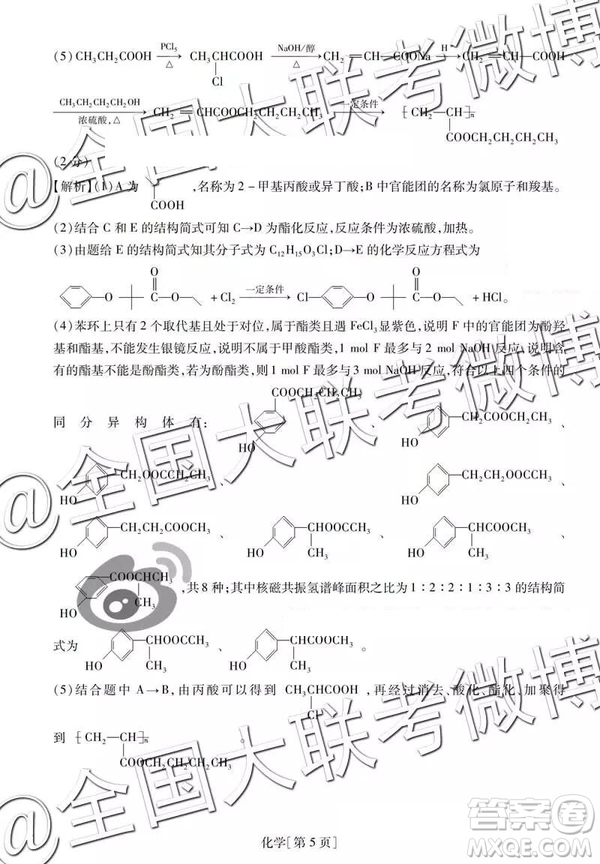 (5) CH₃CH₂COOH —PCl₅/△→ CH₃CHCOOH —NaOH/醇/△→ CH₂=CHCOONa —H⁺→ CH₂=CHCOOH
Cl
CH₃CH₂CH₂CH₂OH
浓硫酸,△
CH₂=CHCOOCH₂CH₂CH₂CH₃ —一定条件→ [CH₂—CH]n
COOCH₂CH₂CH₂CH₃
(2分)
【解析】(1)A为 COOH ,名称为2-甲基丙酸或异丁酸;B中官能团的名称为氯原子和羧基。
(2)结合C和E的结构简式可知C→D为酯化反应,反应条件为浓硫酸,加热。
(3)由题给E的结构简式知其分子式为C₁₂H₁₅O₃Cl;D→E的化学反应方程式为
+Cl₂ —一定条件→ +HCl。
(4)苯环上只有2个取代基且处于对位,属于酯类且遇FeCl₃显紫色,说明F中的官能团为酚羟
基和酯基,不能发生银镜反应,说明不属于甲酸酯类,1 mol F最多与2 mol NaOH反应,说明含
有的酯基不能是酚酯类,若为酚酯类,则1 mol F最多与3 mol NaOH反应,符合以上四个条件的
同分异构体有:HO COOCH₂CH₂CH₃ 、HO CH₂COOCH₂CH₃ 、
HO CH₂OOCCH₂CH₃ 、HO CH₂CH₂OOCCH₃ 、
HO CH₂CH₂COOCH₃ 、HO CHOOCCH₃ CH₃ 、HO CHCOOCH₃ CH₃ 、
HO COOCHCH₃ CH₃ ,共8种;其中核磁共振氢谱峰面积之比为1∶2∶2∶1∶3∶3的结构简
式为 HO CHOOCCH₃ CH₃ 、HO CHCOOCH₃ CH₃ 。
(5)结合题中A→B,由丙酸可以得到 CH₃CHCOOH Cl ,再经过消去、酸化、酯化、加聚得
到 [CH₂—CH]n COOCH₂CH₂CH₂CH₃ 。
化学[第5页]
@全国大联考微博
@全国大联考微博
@全国大联考微博
答案圈
MXQE.COM